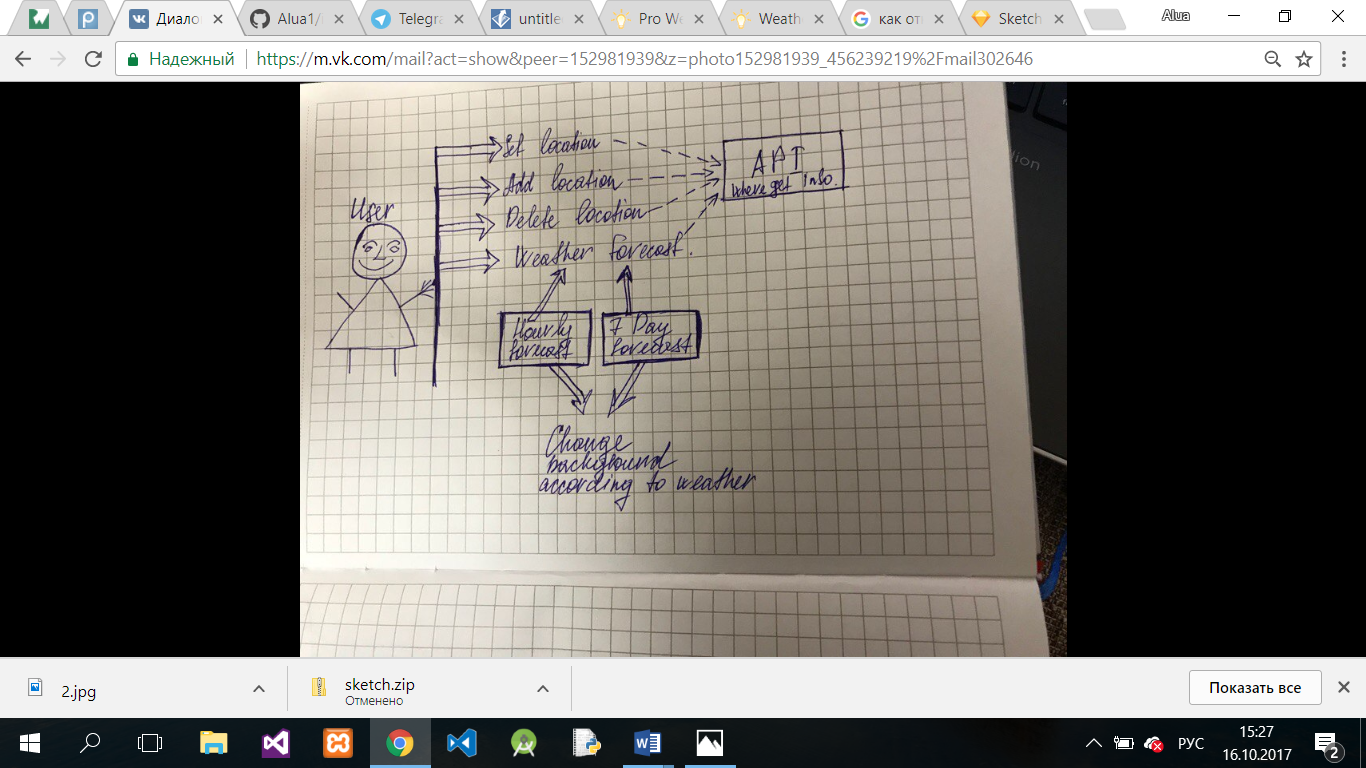 Диало
Alua1/
Telegra
untitle
Pro We
Weath
как от
Sketch
Alua
Надежный
https://m.vk.com/mail?act=show&peer=152981939&z=photo152981939_456239219%2Fmail302646
User
Set location
Add location
Delete location
Weather forecast.
API
where get info.
Hourly
forecast
7 Day
forecast
Change
background
according to weather
2.jpg
sketch.zip
Отменено
Показать все
РУС
15:27
16.10.2017
2